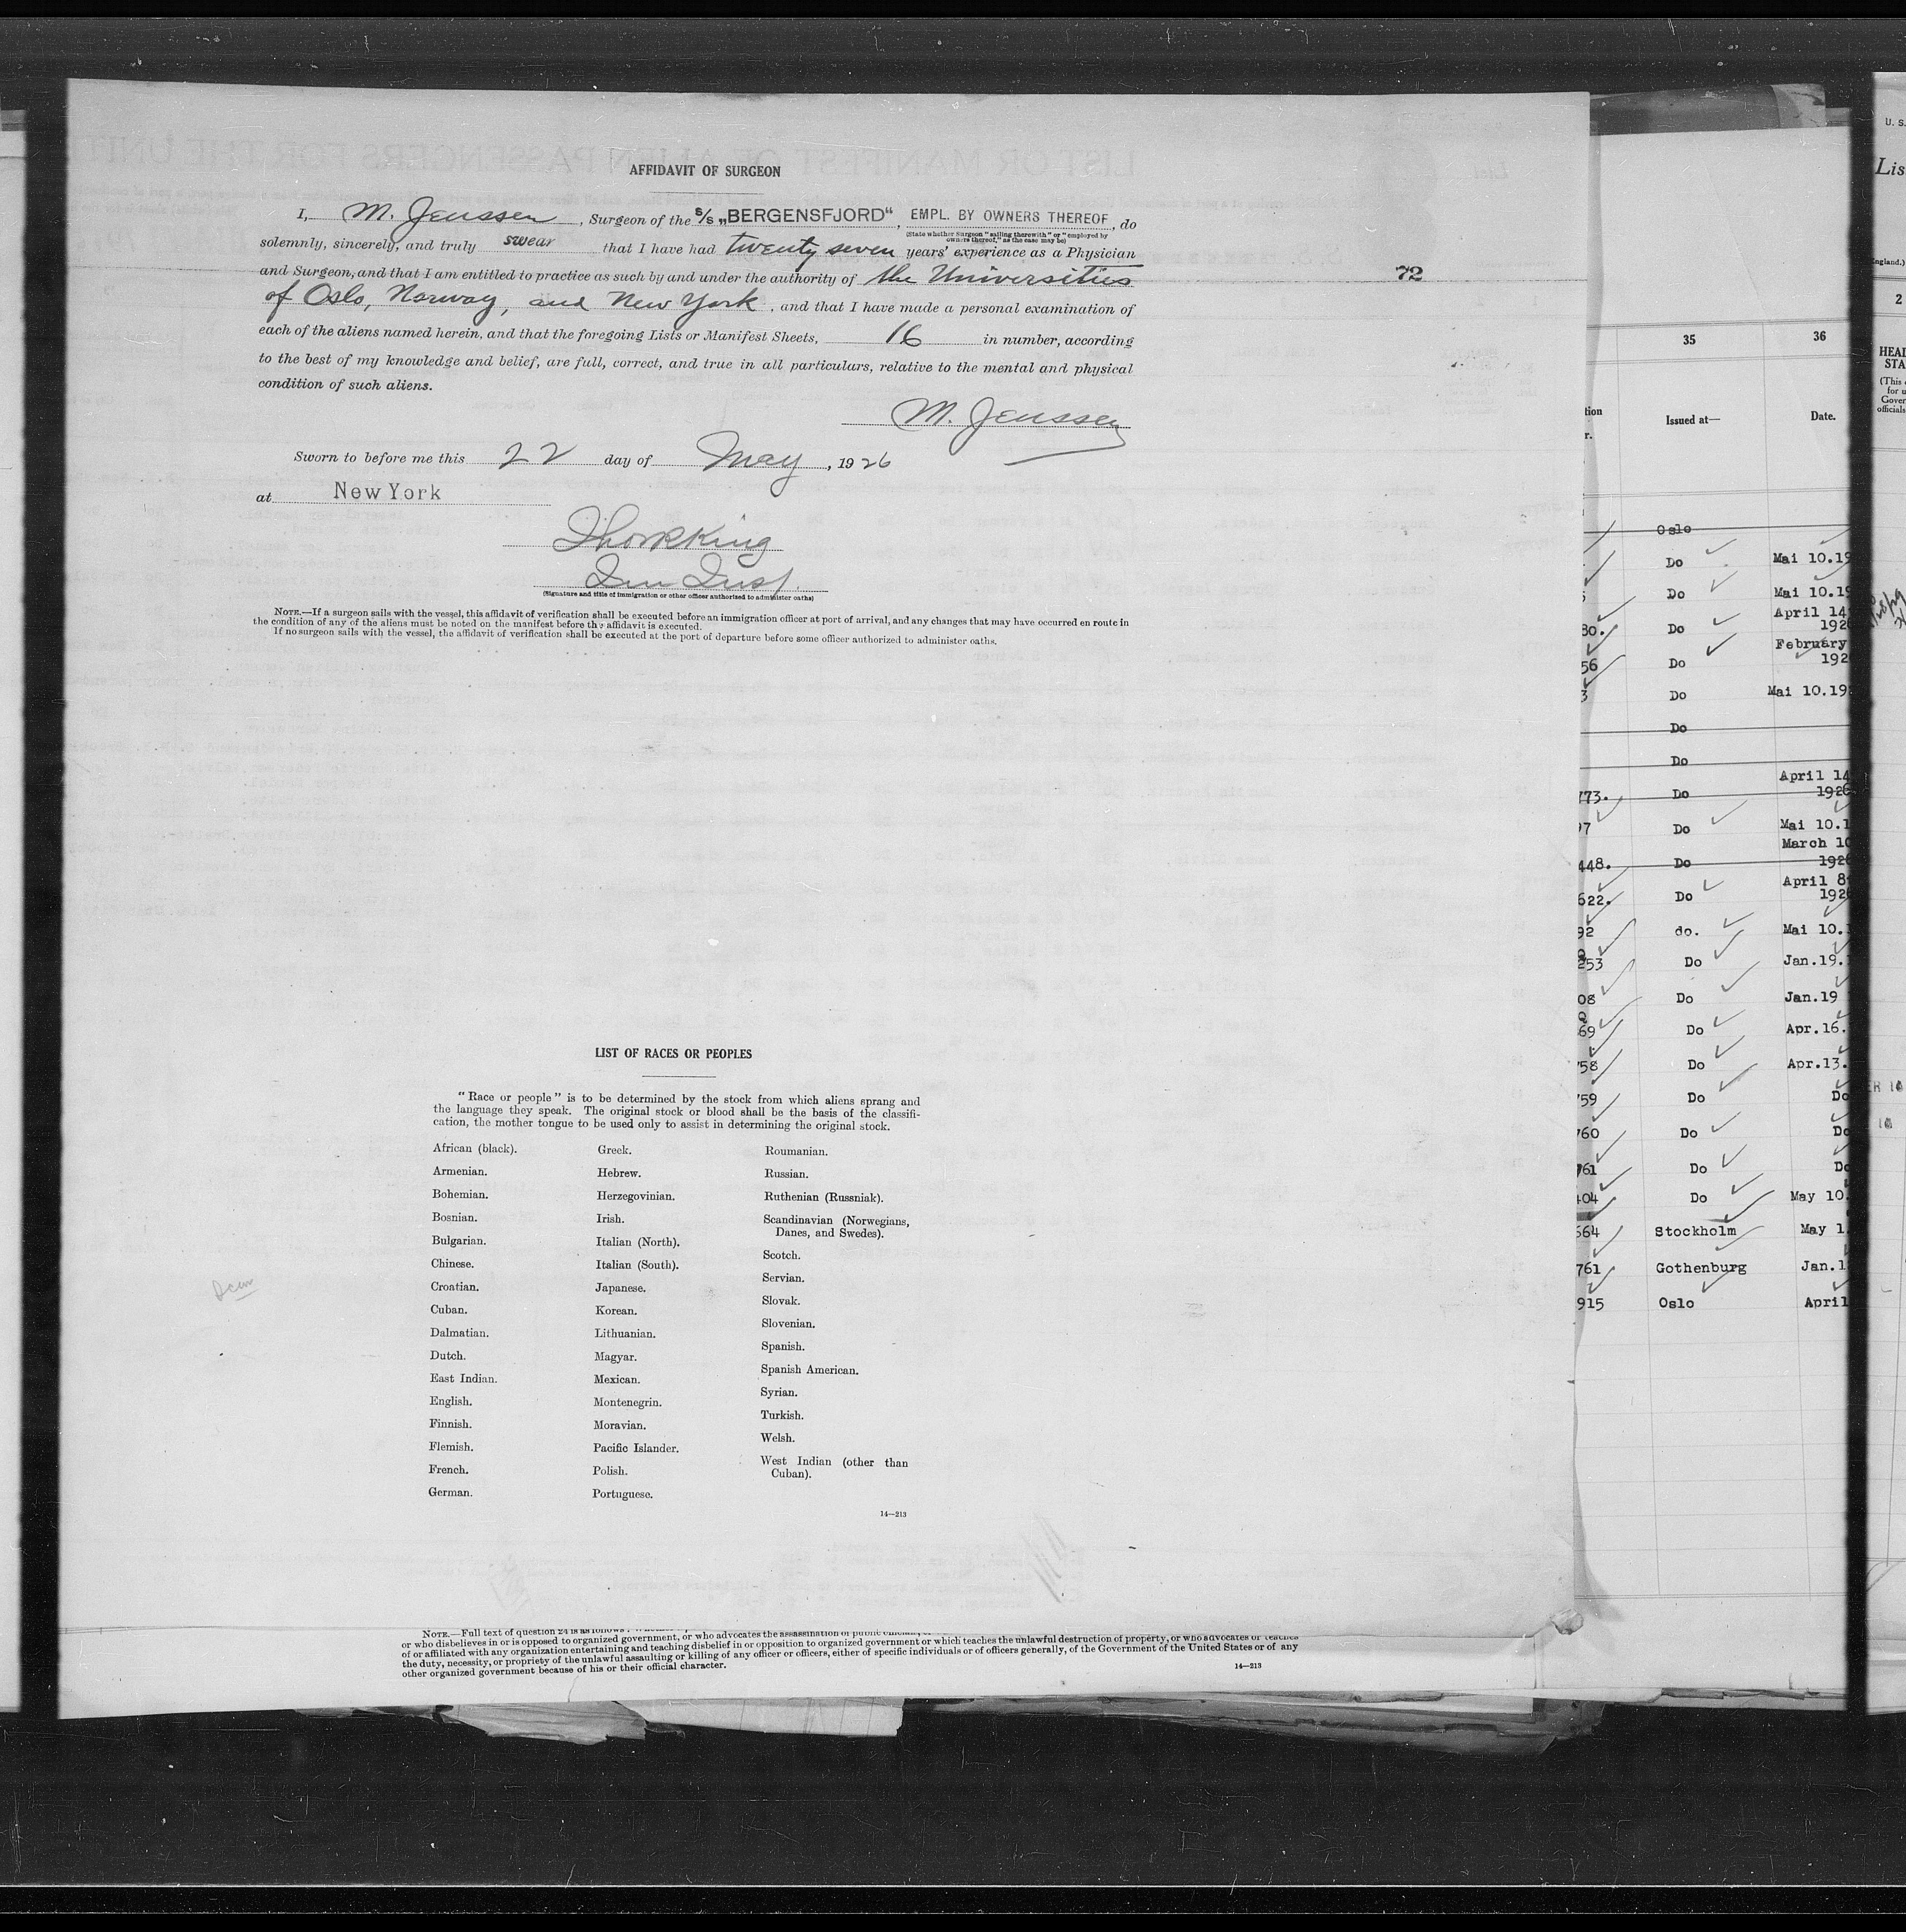 AFFIDAVIT OF SURGEON
I, M. Jenssen, Surgeon of the S/S „BERGENSFJORD“, EMPL. BY OWNERS THEREOF, do
(State whether Surgeon "sailing therewith" or "employed by
owners thereof," as the case may be)
solemnly, sincerely, and truly swear that I have had twenty seven years' experience as a Physician
and Surgeon, and that I am entitled to practice as such by and under the authority of the Universities
of Oslo, Norway, and New York, and that I have made a personal examination of
each of the aliens named herein, and that the foregoing Lists or Manifest Sheets, 16 in number, according
to the best of my knowledge and belief, are full, correct, and true in all particulars, relative to the mental and physical
condition of such aliens.
M. Jenssen
Sworn to before me this 22 day of May, 1926
at New York
(Signature and title of immigration or other officer authorized to administer oaths)
NOTE.—If a surgeon sails with the vessel, this affidavit of verification shall be executed before an immigration officer at port of arrival, and any changes that may have occurred en route in
the condition of any of the aliens must be noted on the manifest before the affidavit is executed.
If no surgeon sails with the vessel, the affidavit of verification shall be executed at the port of departure before some officer authorized to administer oaths.
72
LIST OF RACES OR PEOPLES
"Race or people" is to be determined by the stock from which aliens sprang and
the language they speak. The original stock or blood shall be the basis of the classifi-
cation, the mother tongue to be used only to assist in determining the original stock.
African (black).
Armenian.
Bohemian.
Bosnian.
Bulgarian.
Chinese.
Croatian.
Cuban.
Dalmatian.
Dutch.
East Indian.
English.
Finnish.
Flemish.
French.
German.
Greek.
Hebrew.
Herzegovinian.
Irish.
Italian (North).
Italian (South).
Japanese.
Korean.
Lithuanian.
Magyar.
Mexican.
Montenegrin.
Moravian.
Pacific Islander.
Polish.
Portuguese.
Roumanian.
Russian.
Ruthenian (Russniak).
Scandinavian (Norwegians,
Danes, and Swedes).
Scotch.
Servian.
Slovak.
Slovenian.
Spanish.
Spanish American.
Syrian.
Turkish.
Welsh.
West Indian (other than
Cuban).
14—213
NOTE.—Full text of question 24 is as follows
or who disbelieves in or is opposed to organized government, or who advocates the assassination of public
of or affiliated with any organization entertaining and teaching disbelief in or opposition to organized government or which teaches the unlawful destruction of property, or who advocates or teaches
the duty, necessity, or propriety of the unlawful assaulting or killing of any officer or officers, either of specific individuals or of officers generally, of the Government of the United States or of any
other organized government because of his or their official character.
14—213
35 36
Issued at— Date.
Oslo
Do Mai 10.19
Do Mai 10.19
April 14
80. Do 192
February
56 Do 192
3 Do Mai 10.19
Do
Do
April 14
773. Do 192
97 Do Mai 10.1
March 10
448. Do 192
April 8
622. Do 192
92 do. Mai 10.
253 Do Jan.19.
08 Do Jan.19
69 Do Apr.16.
758 Do Apr.13.
759 Do Do
760 Do Do
761 Do Do
404 Do May 10.
564 Stockholm May 1
761 Gothenburg Jan.1
915 Oslo April